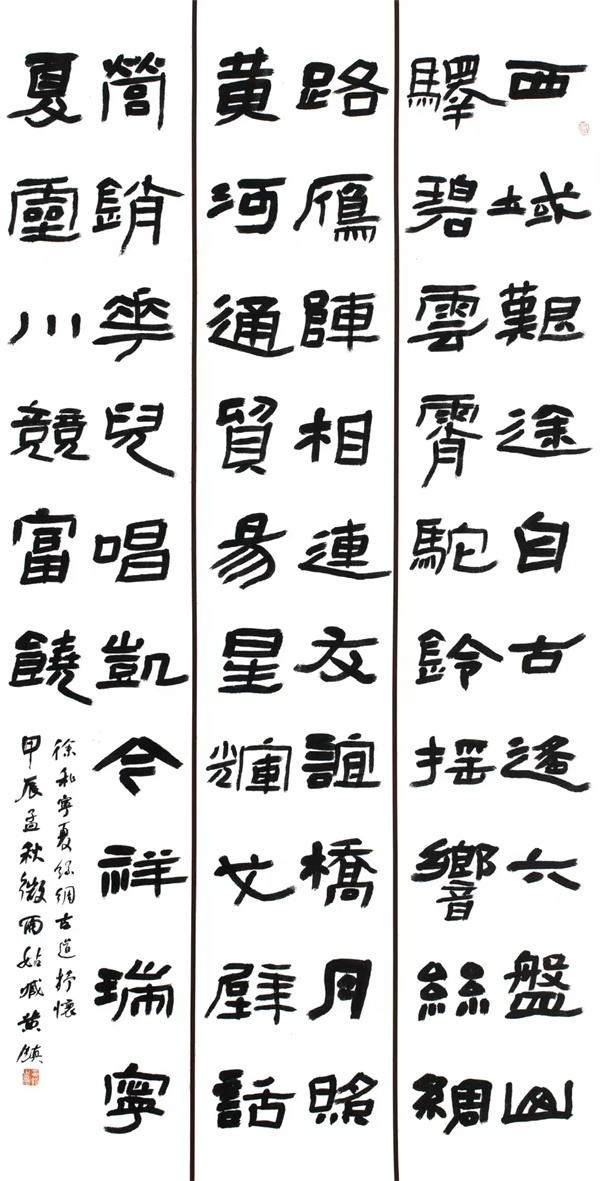 西域艱途自古遙六盤山
驛碧雲霄駝鈴搖響絲綢
路鴈陣相連友誼橋月照
黃河通貿易星輝文壁話
營銷華兒唱凱今祥瑞寧
夏靈川競富饒
徐和寧夏絲綢古道抒懷
甲辰孟秋微雨姑臧黃鎮